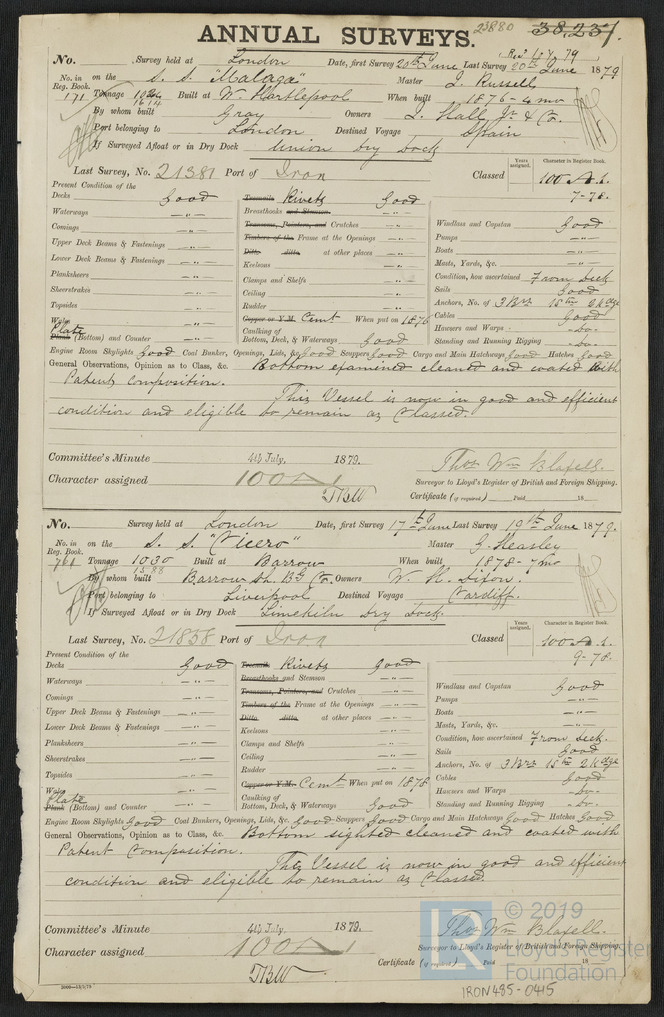 23880 38,237.
ANNUAL SURVEYS.
No. Survey held at London Date, first Survey 20th June Last Survey 20th June 1879
No. in Reg. Book. on the S. S. "Malaga" Master J. Russell
171 Tonnage Built at W. Hartlepool When built 1876-4 mo
1614
By whom built Gray Owners J. Hall Jr. & Co.
Port belonging to London Destined Voyage Spain
If Surveyed Afloat or in Dry Dock Union Dry Dock
Last Survey, No. 21381 Port of Iron Classed Years assigned. Character in Register Book. 100 A.1.
7-78.
Present Condition of the
Decks Good Treenails Rivets Good
Waterways -"- Breasthooks and Stemson -"- Windlass and Capstan Good
Comings -"- Transoms, Pointers, and Crutches -"- Pumps -"-
Timbers of the Frame at the Openings -"- Boats -"-
Upper Deck Beams & Fastenings -"- Ditto ditto at other places -"- Masts, Yards, &c. -"-
Lower Deck Beams & Fastenings -"- Keelsons -"- Condition, how ascertained From Deck
Planksheers -"- Clamps and Shelfs -"- Sails Good
Sheerstrakes -"- Ceiling -"- Anchors, No. of 3 Brs 1 Stm 2 Kdge
Topsides -"- Rudder -"- Cables Good
Wales -"- Copper or Y.M. Cemt When put on 1876 Hawsers and Warps -do-
Plate
Plank (Bottom) and Counter -"- Caulking of Bottom, Deck, & Waterways Good Standing and Running Rigging -do-
Engine Room Skylights Good Coal Bunker, Openings, Lids, &c. Good Scuppers Good Cargo and Main Hatchways Good Hatches Good
General Observations, Opinion as to Class, &c. Bottom examined cleaned and coated with
Patent Composition.
This Vessel is now in good and efficient
condition and eligible to remain as Classed.
Committee's Minute 4th July, 1879. Thos Wm Blaxell.
Character assigned 100 A 1 Surveyor to Lloyd's Register of British and Foreign Shipping.
Certificate (if required) Paid 18
No. Survey held at London Date, first Survey 17th June Last Survey 19th June 1879.
No. in Reg. Book. on the S. S. "Cicero" Master G. Heasley
761 Tonnage 1030 Built at Barrow When built 1878-7 mo
1588
By whom built Barrow Sh. Bg Co. Owners W. H. Dixon.
Port belonging to Liverpool Destined Voyage Cardiff.
If Surveyed Afloat or in Dry Dock Limekiln Dry Dock
Last Survey, No. 21838 Port of Iron Classed Years assigned. Character in Register Book. 100 A.1.
9-78.
Present Condition of the
Decks Good Treenails Rivets Good
Waterways -"- Breasthooks and Stemson -"- Windlass and Capstan Good
Comings -"- Transoms, Pointers, and Crutches -"- Pumps -"-
Upper Deck Beams & Fastenings -"- Timbers of the Frame at the Openings -"- Boats -"-
Lower Deck Beams & Fastenings -"- Ditto ditto at other places -"- Masts, Yards, &c. -"-
Keelsons -"- Condition, how ascertained From Deck.
Planksheers -"- Clamps and Shelfs -"- Sails Good
Sheerstrakes -"- Ceiling -"- Anchors, No. of 3 Brs 1 Stm 2 Kdge
Topsides -"- Rudder -"- Cables Good
Wales -"- Copper or Y.M. Cemt When put on 1878 Hawsers and Warps -do-
Plate
Plank (Bottom) and Counter -"- Caulking of Bottom, Deck, & Waterways Good Standing and Running Rigging -do-
Engine Room Skylights Good Coal Bunkers, Openings, Lids, &c. Good Scuppers Good Cargo and Main Hatchways Good Hatches Good
General Observations, Opinion as to Class, &c. Bottom sighted cleaned and coated with
Patent Composition.
This Vessel is now in good and efficient
condition and eligible to remain as Classed.
Committee's Minute 4th July, 1879. Thos Wm Blaxell.
Character assigned 100 A 1 Surveyor to Lloyd's Register of British and Foreign Shipping.
Certificate (if required) Paid 18
LR © 2019
Lloyd's Register
Foundation
IRON485-0415